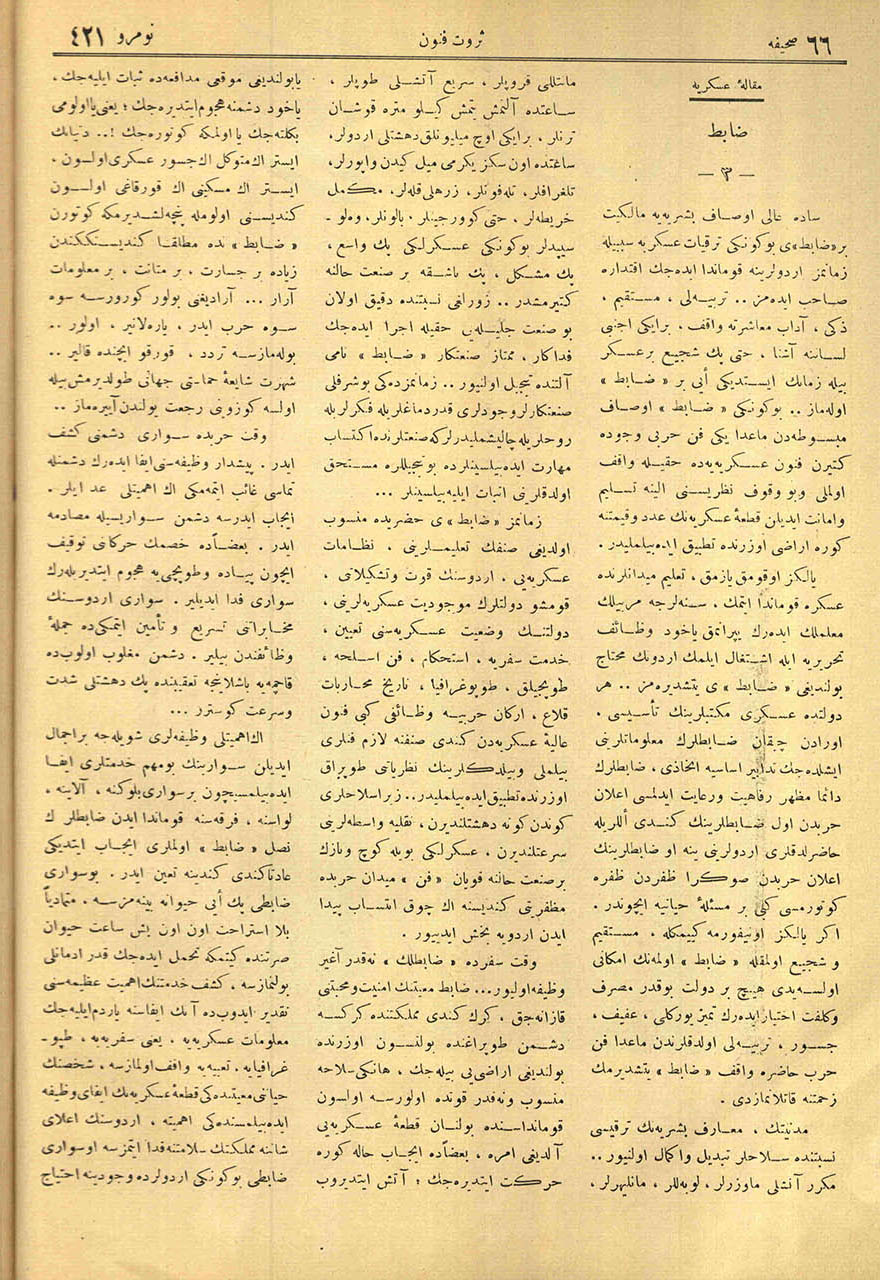 ٦٦ صحیفه
ثروت فنون
نومرو ٤٢١
مقالهٔ عسکریه
ضابط
— ٣ —
ساده عالی اوصاف بشریه‌یه مالکیت
بر «ضابط»ی بوكونكی ترقیات عسکریه سببیله
زمانمز اردولرینه قوماندا ایده‌جك اقتداره
صاحب ایده‌مز .. تربیه‌لی ، مستقیم ،
ذکی ، آداب معاشرته واقف ، برایکی اجنبی
لساننه آشنا ، حتی پك شجیع برعسکر
بیله زمانك ایستدیکی أیی بر « ضابط »
اوله‌ماز .. بوكونكی « ضابط » اوصاف
مبسوطه‌دن ماعدا یکی فن حربی وجوده
کتیرن فنون عسکریه‌یه‌ده حقیله واقف
اولملی وبو وقوف نظریسنی الینه تسلیم
وامانت ایدیلن قطعهٔ عسکریه‌نك عدد وقیمتنه
کوره اراضی اوزرنده تطبیق ایده‌بیلملیدر .
یالکز اوقومق یازمق ، تعلیم میدانلرنده
عسکره قوماندا ایتمك ، سنه‌لرجه مربیلك
معلملك ایده‌رك یپرانمق یاخود وظائف
تحریریه ایله اشتغال ایلمك اردونك محتاج
بولندیغی « ضابط » ی یتشدیره‌مز .. هر
دولتده عسکری مکتبلرینك تأسیسی ،
اورادن چیقان ضابطلرك معلوماتلرینی
ایشلده‌جك تدابیر اساسیه اتخاذی ، ضابطلرك
دائما مظهر رفاهیت ورعایت ایدلمسی اعلان
حربدن اول ضابطلرینك کندی أللریله
حاضرلدقلری اردولرینی ینه او ضابطلرینك
اعلان حربدن صوکرا ظفردن ظفره
کوتورمسی کبی بر مسئلهٔ حیاتیه ایچوندر .
اکر یالکز اونیفورمه کییمکله ، مستقیم
و شجیع اولمقله « ضابط » اولمه‌نك امکانی
اولسه‌یدی هیچ بر دولت بوقدر مصرف
وکلفت اختیار ایده‌رك تمیز یورکلی ، عفیف ،
جسور ، تربیه‌لی اولدقلرندن ماعدا فن
حرب حاضره واقف « ضابط » یتشدیرمك
زحمتنه قاتلانمازدی .
مدنیتك ، معارف بشریه‌نك ترقیسی
نسبتنده سلاحلر تبدیل واکمال اولنیور ..
مکرر آتشلی ماوزرلر ، لوبه‌للر ، مانلیهرلر ،
مانتللی قروپلر ، سریع آتشلی طوپلر ،
ساعتده آلتمش یتمش کیلو متره قوشان
ترنلر ، برایکی اوچ میلیونلق دهشتلی اردولر ،
ساعتده اون سکز یکرمی میل کیدن واپورلر ،
تلغرافلر ، تله‌فونلر ، زرهلی قله‌لر ، مکمل
خریطه‌لر ، حتی کوورجینلر ، بالونلر ، وه‌لو-
سیپدلر بوكونكی عسکرلکی پك واسع ،
پك مشکل ، پك باشقه بر صنعت حالنه
کتیرمشدر .. زورلغی نسبتنده دقیق اولان
بو صنعت جلیله‌یی حقیله اجرا ایده‌جك
فداکار ، ممتاز صنعتکار « ضابط » نامی
آلتنده تبجیل اولنیور .. زمانمزده‌کی بوشرفلی
صنعتکارلر وجودلری قدر دماغلریله فکرلریله
روحلریله چالیشملیدرلرکه صنعتلرنده اکتساب
مهارت ایده‌بیلسینلرده بوتبجیللره مستحق
اولدقلرینی اثبات ایلیه‌بیلسینلر ...
زمانمز « ضابط » ی حضریده منسوب
اولدیغی صنفك تعلیملرینی ، نظامات
عسکریه‌یی ، اردوسنك قوت وتشکیلاتی ،
قومشو دولتلرك موجودیت عسکریه‌لرینی ،
دولتنك وضعیت عسکریه‌سنی تعیین ،
خدمت سفریه ، استحکام ، فن اسلحه ،
طوپجیلق ، طوپوغرافیا ، تاریخ محاربات
قلاع ، ارکان حربیه وظائفی کبی فنون
عالیهٔ عسکریه‌دن کندی صنفنه لازم فنلری
بیلملی وبیلدکلرینك نظریاتی طوپراق
اوزرنده تطبیق ایده‌بیلملیدر .. زیرا سلاحلری
کوندن کونه دهشتلندیرن ، نقلیه واسطه‌لرینی
سرعتلندیرن ، عسکرلکی بویله کوچ ونازك
برصنعت حالنه قویان « فن » میدان حربده
مظفریتی کندیسنه اك چوق انتساب پیدا
ایدن اردویه بخش ایدییور .
وقت سفرده « ضابطلك » نه‌قدر آغیر
وظیفه اولیور ... ضابط معیتنك امنیت ومحبتی
قازانه‌جق ، کرك کندی مملکتنده کرکسه
دشمن طوپراغنده بولنسون اوزرنده
بولندیغی اراضی‌یی بیله‌جك ، هانکی سلاحه
منسوب ونه‌قدر قوتده اولورسه اولسون
قوماندا‌سنده بولنان قطعهٔ عسکریه‌یی
آلدیغی امره ، بعضاً‌ده ایجاب حاله کوره
حرکت ایتدیره‌جك ؛ آتش ایتدیروب
یا بولندیغی موقعی مدافعه‌ده ثبات ایلیه‌جك ،
یاخود دشمنه هجوم ایتدیره‌جك ؛ یعنی یا اولومی
بکلته‌جك یا اولمکه کوتوره‌جك !.. دنیانك
ایستر اك متوکل اك جسور عسکری اولسون ،
ایستر اك مسکینی اك قورقاغی اولسون
کندیسنی اولومله پنجه‌لشدیرمکه کوتورن
« ضابط » نده مطلقا کندیسنککندن
زیاده بر جسارت ، بر متانت ، بر معلومات
آرار ... آرادیغنی بولور کورورسه سوه
سوه حرب ایدر ، یاره‌لانیر ، اولور ..
بوله‌مازسه تردد ، قورقو ایچنده قالیر ..
شهرت شایعهٔ حماستی جهانی طولدیرمش بیله
اولسه کوزینی رجعت یولندن آییره‌ماز ..
وقت حربده سواری دشمنی کشف
ایدر . پیشدار وظیفه‌سنی ایفا ایده‌رك دشمنله
تماسی غائب ایتمه‌مکی اك اهمیتلی عد ایلر .
ایجاب ایدرسه دشمن سواریسیله مصادمه
ایدر . بعضاً‌ده خصمك حرکاتنی توقیف
ایچون پیاده وطوپجی‌یه هجوم ایتدیریله‌رك
سواری فدا ایدیلیر . سواری اردوسنك
مخابراتنی تسریع و تأمین ایتمکی‌ده جملهٔ
وظائفندن بیلیر . دشمن مغلوب اولوب‌ده
قاچمه‌یه باشلاینجه تعقیبنده پك دهشتلی شدت
وسرعت کوسترر ...
اك اهمیتلی وظیفه‌لری شویله‌جه بر اجمال
ایدیلن سوارینك بومهم خدمتلری ایفا
ایده‌بیلمسیچون برسواری بلوکنه ، آلاینه ،
لواسنه ، فرقه‌سنه قوماندا ایدن ضابطلرك
نصل « ضابط » اولملری ایجاب ایتدیکی
عادتا کندی کندینه تعین ایدر . بوسواری
ضابطی پك أیی حیوانه بینه‌مزسه ، متمادیاً
بلا استراحت اون اون بش ساعت حیوان
صرتنده کیتمکه تحمل ایده‌جك قدر ادمانلی
بولنمازسه ، کشف خدمتنك اهمیت عظیمه‌سنی
تقدیر ایدوب‌ده آنك ایفاسنه یاردم ایلیه‌جك
معلومات عسکریه‌یه ، یعنی سفریه‌یه ، طپو-
غرافیایه ، تعبیه‌یه واقف اولمازسه ، شخصنك
حیاتنی معیتنده‌کی قطعهٔ عسکریه‌نك ایفای وظیفه
ایده‌بیلمسنده‌کی اهمیته ، اردوسنك اعلای
شاننه مملکتنك سلامتنه فدا ایتمزسه او سواری
ضابطی بوكونكی اردولرده وجودینه احتیاج